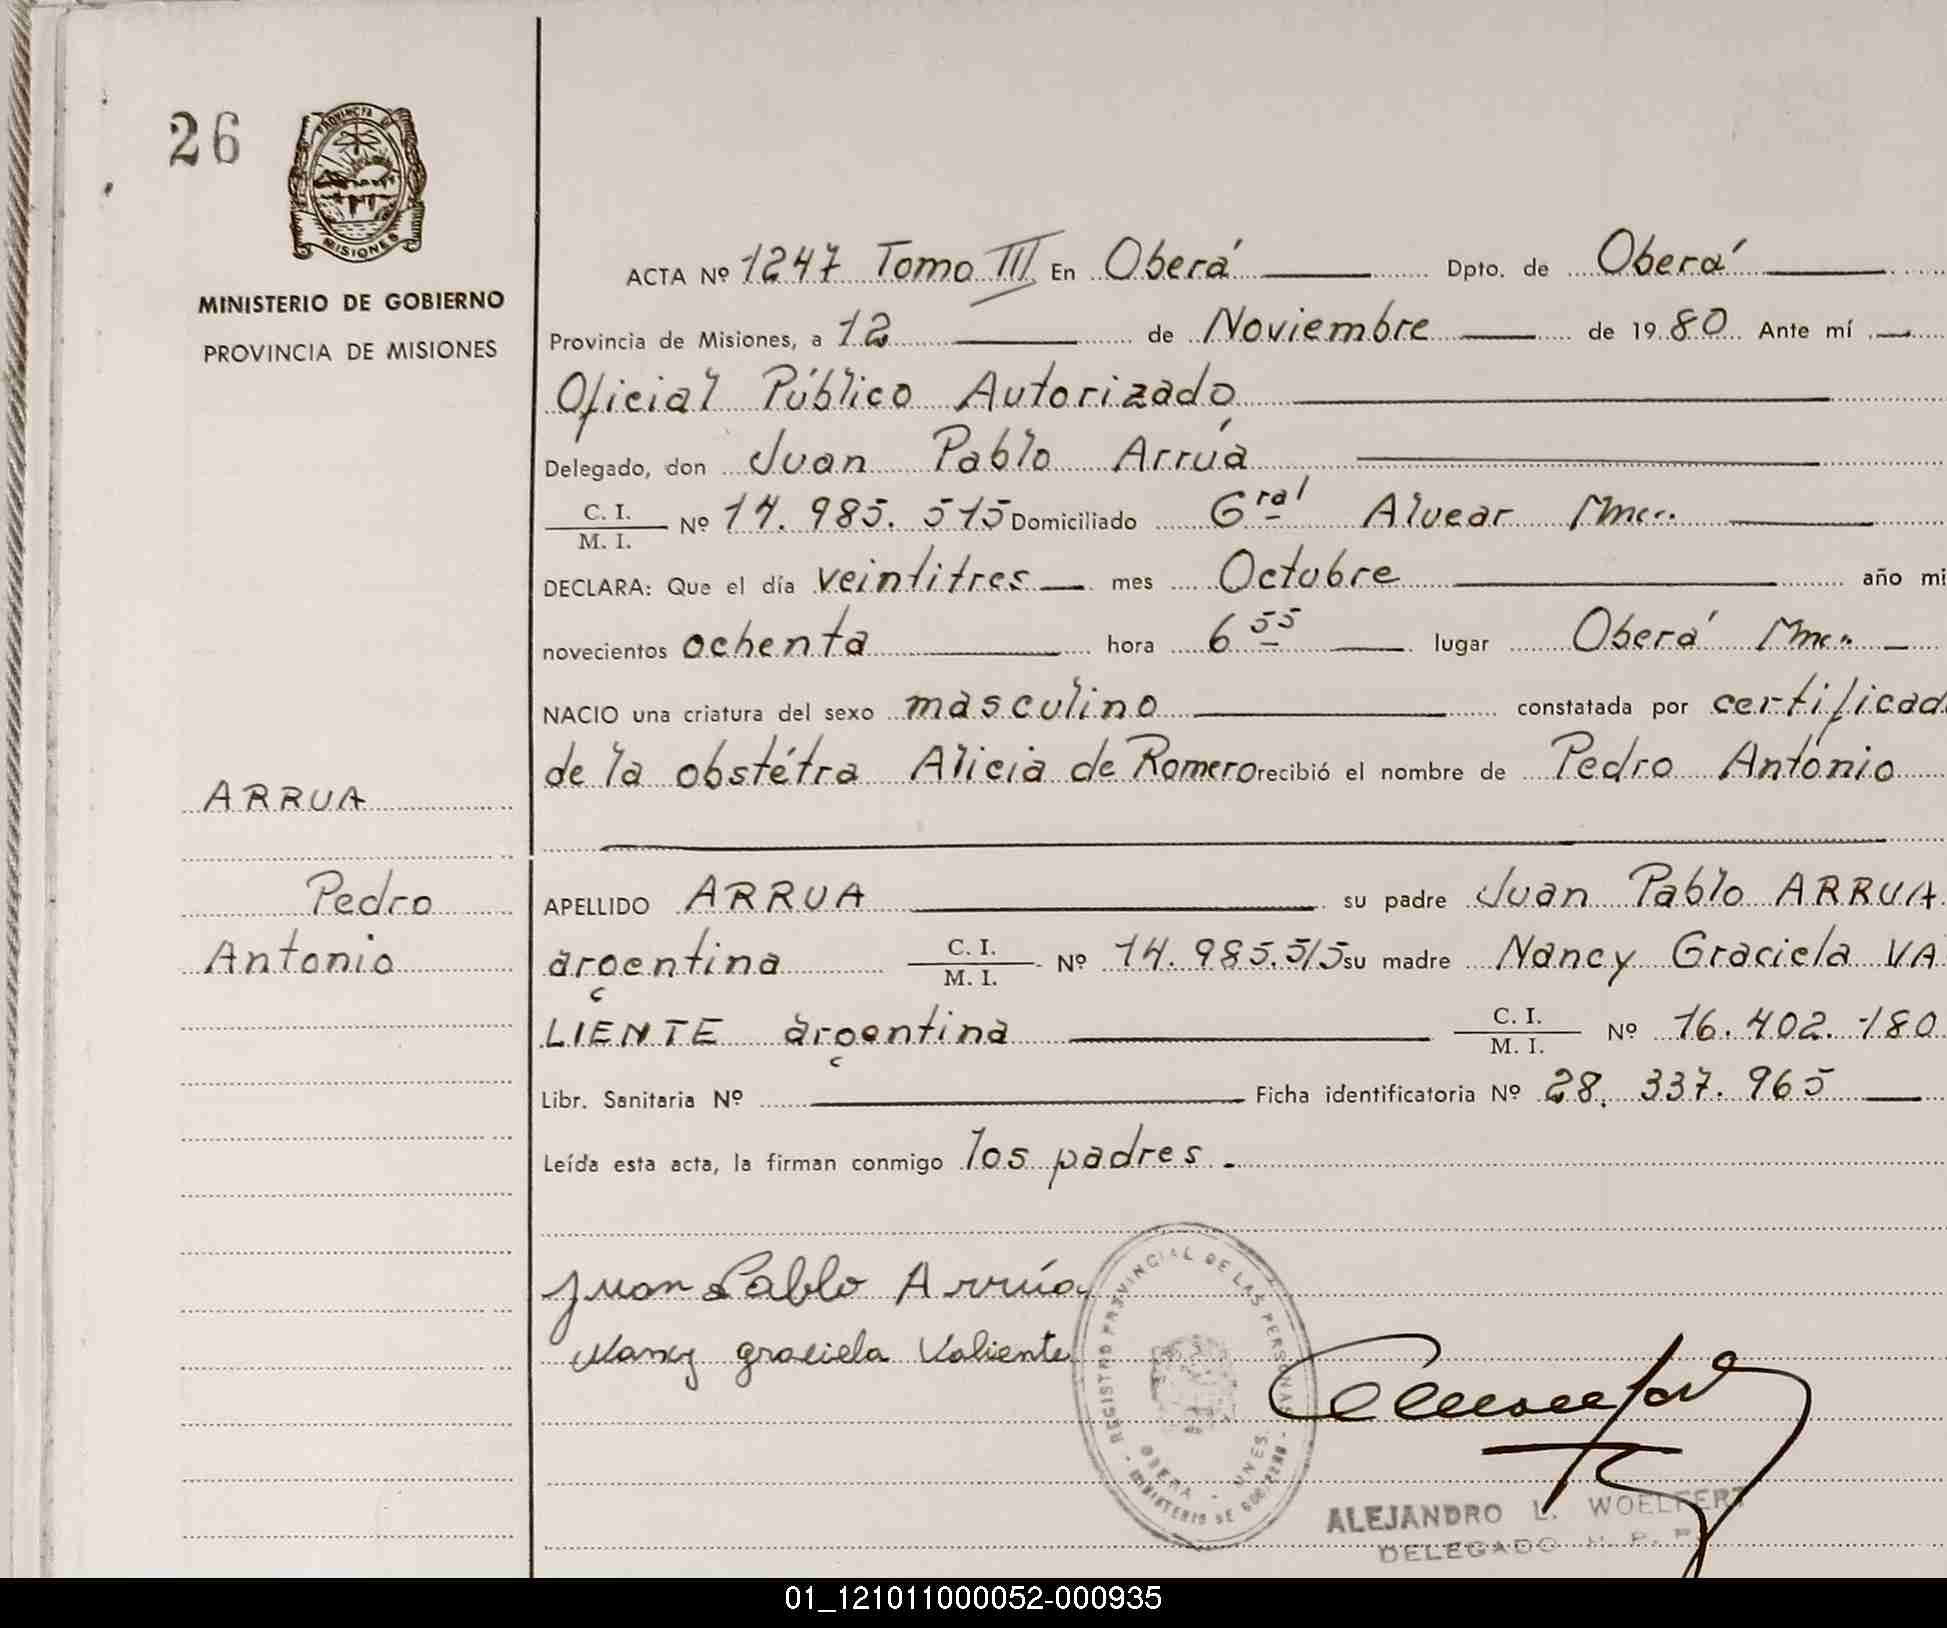 26
PROVINCIA DE
MISIONES
MINISTERIO DE GOBIERNO
PROVINCIA DE MISIONES
ARRUA
Pedro
Antonio
ACTA Nº 1247 Tomo III En Oberá Dpto. de Oberá
Provincia de Misiones, a 12 de Noviembre de 1980 Ante mí
Oficial Público Autorizado
Delegado, don Juan Pablo Arrúa
C. I.
M. I. Nº 14.985.515 Domiciliado Gral Alvear Mnes
DECLARA: Que el día veintitres mes Octubre año mi
novecientos ochenta hora 6 55 lugar Oberá Mnes
NACIO una criatura del sexo masculino constatada por certificad
de la obstétra Alicia de Romero recibió el nombre de Pedro Antonio
APELLIDO ARRUA su padre Juan Pablo ARRUA
argentina C. I.
M. I. Nº 14.985.515 su madre Nancy Graciela VA
LIENTE argentina C. I.
M. I. Nº 16.402.180
Libr. Sanitaria Nº Ficha identificatoria Nº 28.337.965
Leída esta acta, la firman conmigo los padres.-
Juan Pablo Arrúa
Nancy graciela Valiente
REGISTRO PROVINCIAL DE LAS PERSONAS
OBERA - MNES.
MINISTERIO DE GOBIERNO
ALEJANDRO L. WOELFERT
DELEGADO R. P. P.
01_121011000052-000935